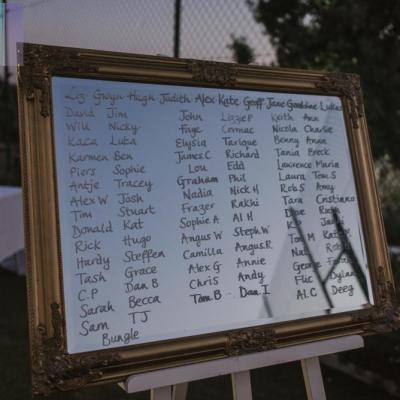 Liz Gwyn Hugh Judith Alex Kate Geoff Jane Geraldine Lukas
David Jim
Will Nicky
Kaca Luka
Karmen Ben
Piers Sophie
Antje Tracey
Alex W Josh
Tim Stuart
Donald Kat
Rick Hugo
Hardy Steffen
Tash Grace
C.P Dan B
Sarah Becca
Sam TJ
Bungle
John Lizzie P
Faye Cormac
Elysia Tarique
James C Richard
Lou Edd
Graham Phil
Nadia Nick H
Frazer Rakhi
Sophie A Al H
Angus W Steph W
Camilla Angus R.
Alex G Annie
Chris Andy
Tom B Dan I
Keith Ann
Nicola Charlie
Benny Anna
Tania Breck
Lawrence Maria
Laura Tom S
Rob S Amy
Tara Cristiano
Dave
Tom M
George
Flic Dylan
Al C Deeg